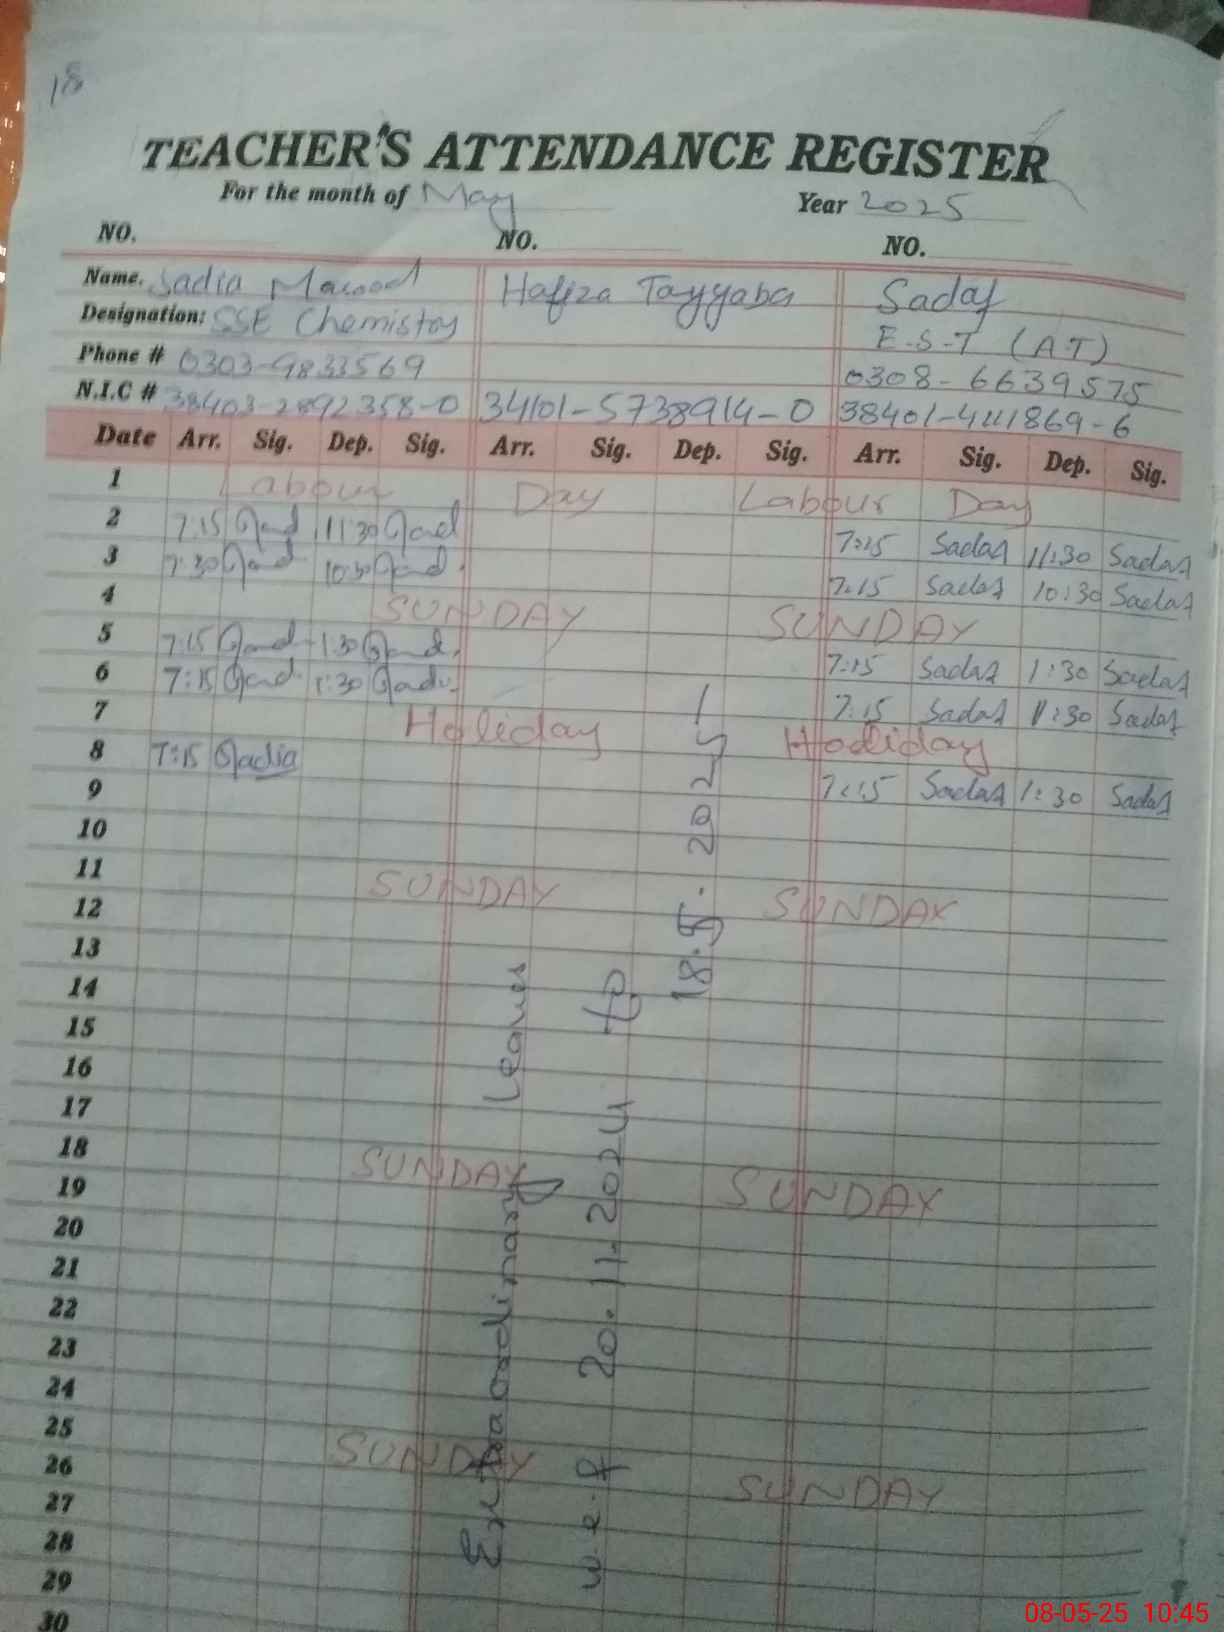 18
TEACHER'S ATTENDANCE REGISTER
For the month of May Year 2025
NO. NO. NO.
Name. Sadia Hafiza Tayyaba Sadaf
Designation: SSE Chemistry E.S.T (AT)
Phone # 0303-9833569 0308-6639575
N.I.C # 38403-2892358-0 34101-5738914-0 38401-4411869-6
Date Arr. Sig. Dep. Sig. Arr. Sig. Dep. Sig. Arr. Sig. Dep. Sig.
1 Labour Day Labour Day
2 7:15 11:30 7:15 Sadaf 11:30 Sadaf
3 7:30 10:30 7:15 Sadaf 10:30 Sadaf
4 SUNDAY SUNDAY
5 7:15 1:30 7:15 Sadaf 1:30 Sadaf
6 7:15 1:30 7:15 Sadaf 1:30 Sadaf
7 Holiday Holiday
8 7:15 Sadia 7:15 Sadaf 1:30 Sadaf
9
10
11 SUNDAY SUNDAY
12
13
14
15
16
17
18 SUNDAY SUNDAY
19
20
21
22
23
24
25 SUNDAY SUNDAY
26
27
28
29
30
Extraordinary Leaves
w.e.f 20.11.2024 to
18.5.2025
08-05-25 10:45